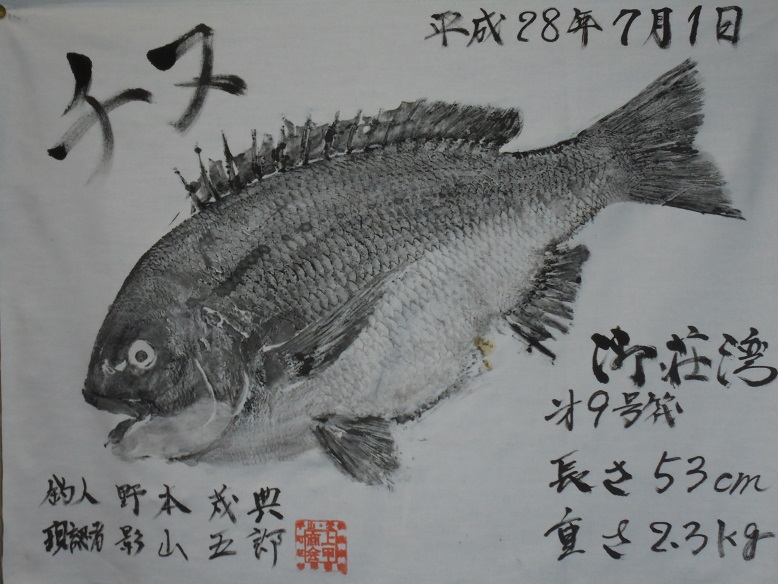 平成28年7月1日
チヌ
御荘湾
才9号筏
長さ53cm
重さ2.3kg
釣人 野本 茂典
現認者 影山 五郎